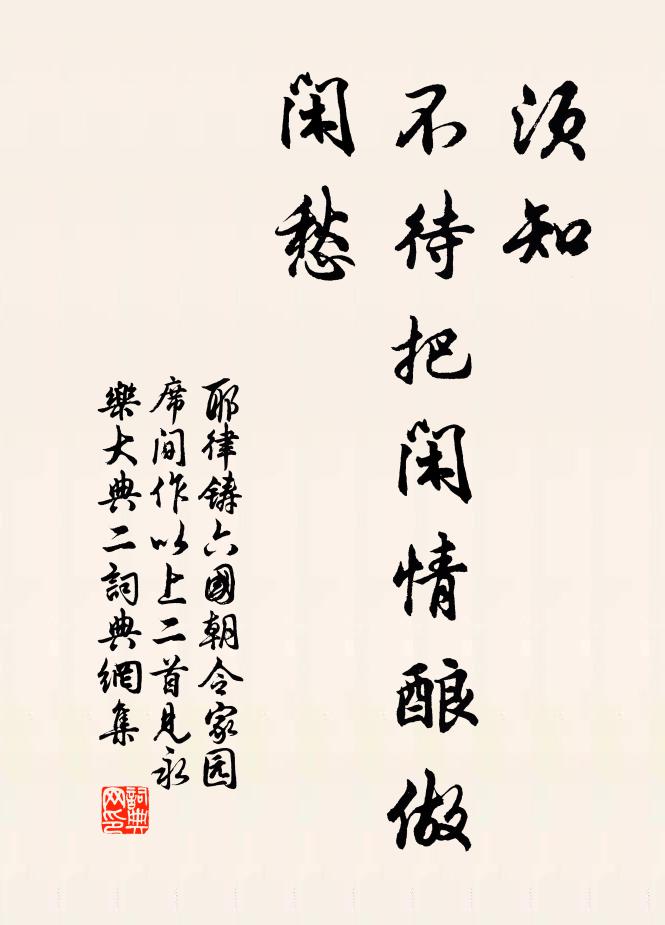 须知
不待把闲情酿做
闲愁
耶律鑄六國朝令家园
席间作以上二首见永
樂大典二詞典網集
詞典
网印